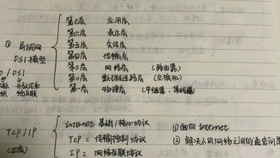 第七层 应用层
第六层 表示层
① 局域网 第五层 会话层
OSI模型 第四层 传输层
第三层 网络层 (路由器)
第二层 数据链路层 (交换机)
第一层 物理层 (中继器、集线器)
internet 基础/核心协议 ① 面向internet
TCP/IP TCP: 传输控制协议 ② 解决不同网络之间的通信问题
IP: 网络互联协议